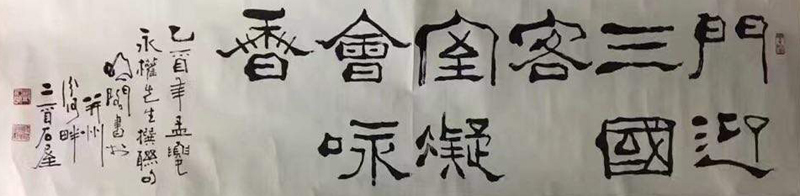 門迎
三國
客
室凝
會咏
香
乙酉年孟
永權先生撰聯句
書於
并州
汾河畔
石屋